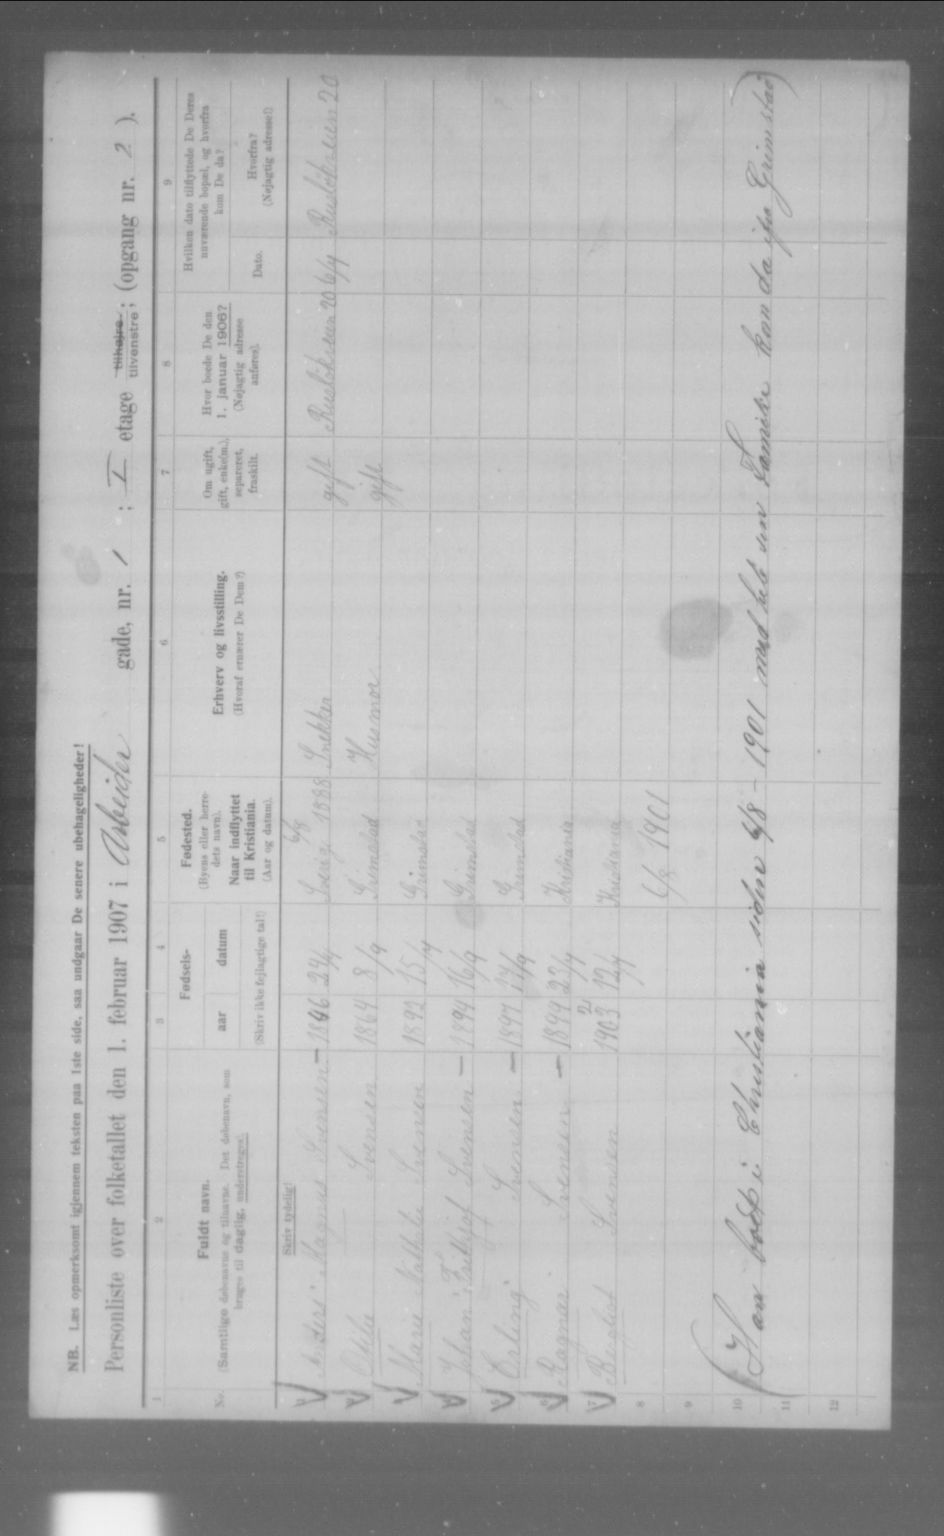 NB. Læs opmerksomt igjennem teksten paa 1ste side, saa undgaar De senere ubehageligheder!
Personliste over folketallet den 1. februar 1907 i Arbeider gade, nr. 1 ; I etage tilhøjre tilvenstre; (opgang nr. 2 ).
1 2 3 4 5 6 7 8 9
No. Fuldt navn. Fødsels- aar datum Fødested. Erhverv og livsstilling. Om ugift, Hvor boede De den Hvilken dato tilflyttede De Deres
(Samtlige døbenavne og tilnavne. Det døbenavn, som (Byens eller herre- (Hvoraf ernærer De Dem?) gift, enke(m), 1. januar 1906? nuværende bopæl, og hvorfra
bruges til dagtig, understreges). dets navn). separeret, (Nøjagtig adresse kom De da?
Naar indflyttet fraskilt. anføres). Dato. Hvorfra?
til Kristiania. (Nøjagtig adresse!)
(Skriv ikke fejlagtige tal!) (Aar og datum).
Skriv tydelig!
6/8
Anders Magnus Svensen 1846 24/4 Sverig 1888 Snekker gift Ruseløkveien 20 6/4 Ruseløkveien 20
Otilie Svensen 1864 8/9 Grimstad Husmor gift
Maria Mathilde Svensen 1892 15/4 Grimstad
Johan Fridthjof Svensen 1894 16/9 Grimstad
5 Erling Svensen 1897 Grimstad
6 Ragnar Svensen 1899 23/4 Kristiania
7 Bergliot Svensen 1903 12/4 Kristiania
8 6/8 1901
9
10 (Han bodde i Christiania siden 6/8 - 1901 med hele sin Familie kom da fra Grimstad)
11
12